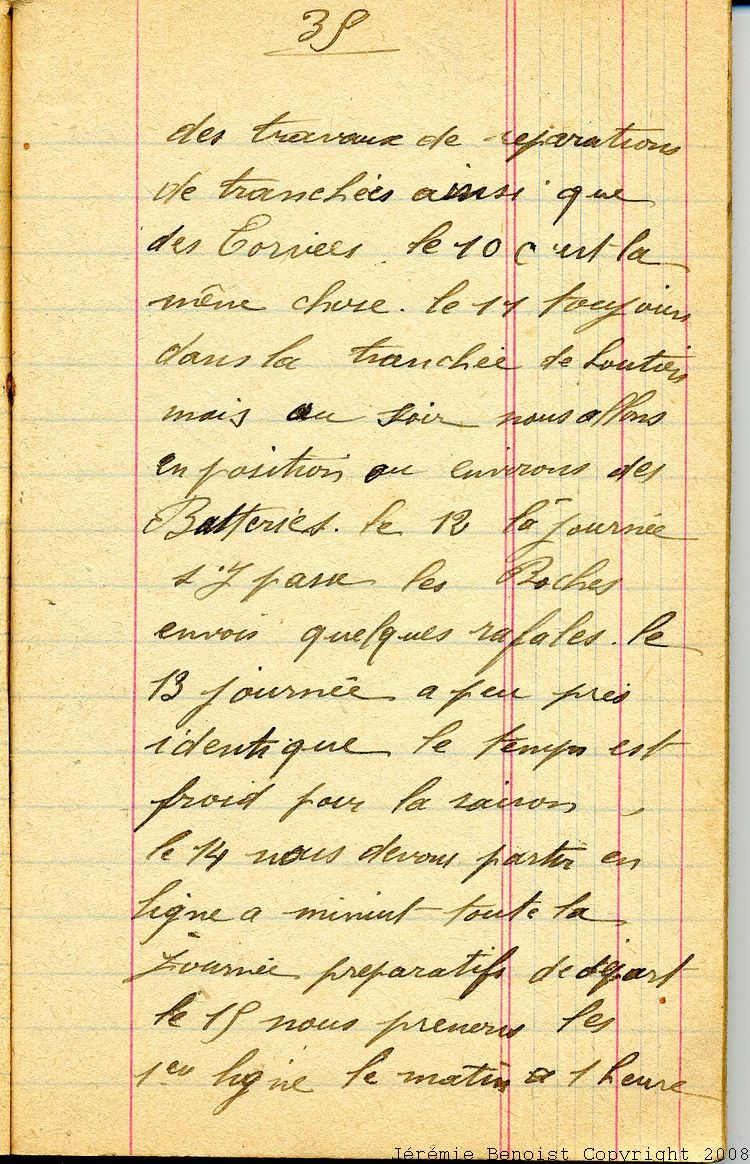 35
des travaux de reparations
de tranchées ainsi que
des Corvées. le 10 c'est la
même chose. le 11 toujours
dans la tranchée de Soutien
mais au soir nous allons
en position au environs des
Batteries. le 12 la journée
s'y passe les Boches
envois quelques rafales. le
13 journée a peu près
identique le temps est
froid pour la saison,
le 14 nous devons partir en
ligne a minuit toute la
journée preparatifs de départ
le 15 nous prenens les
1eres ligne le matin a 1 heure
Jérémie Benoist Copyright 2008